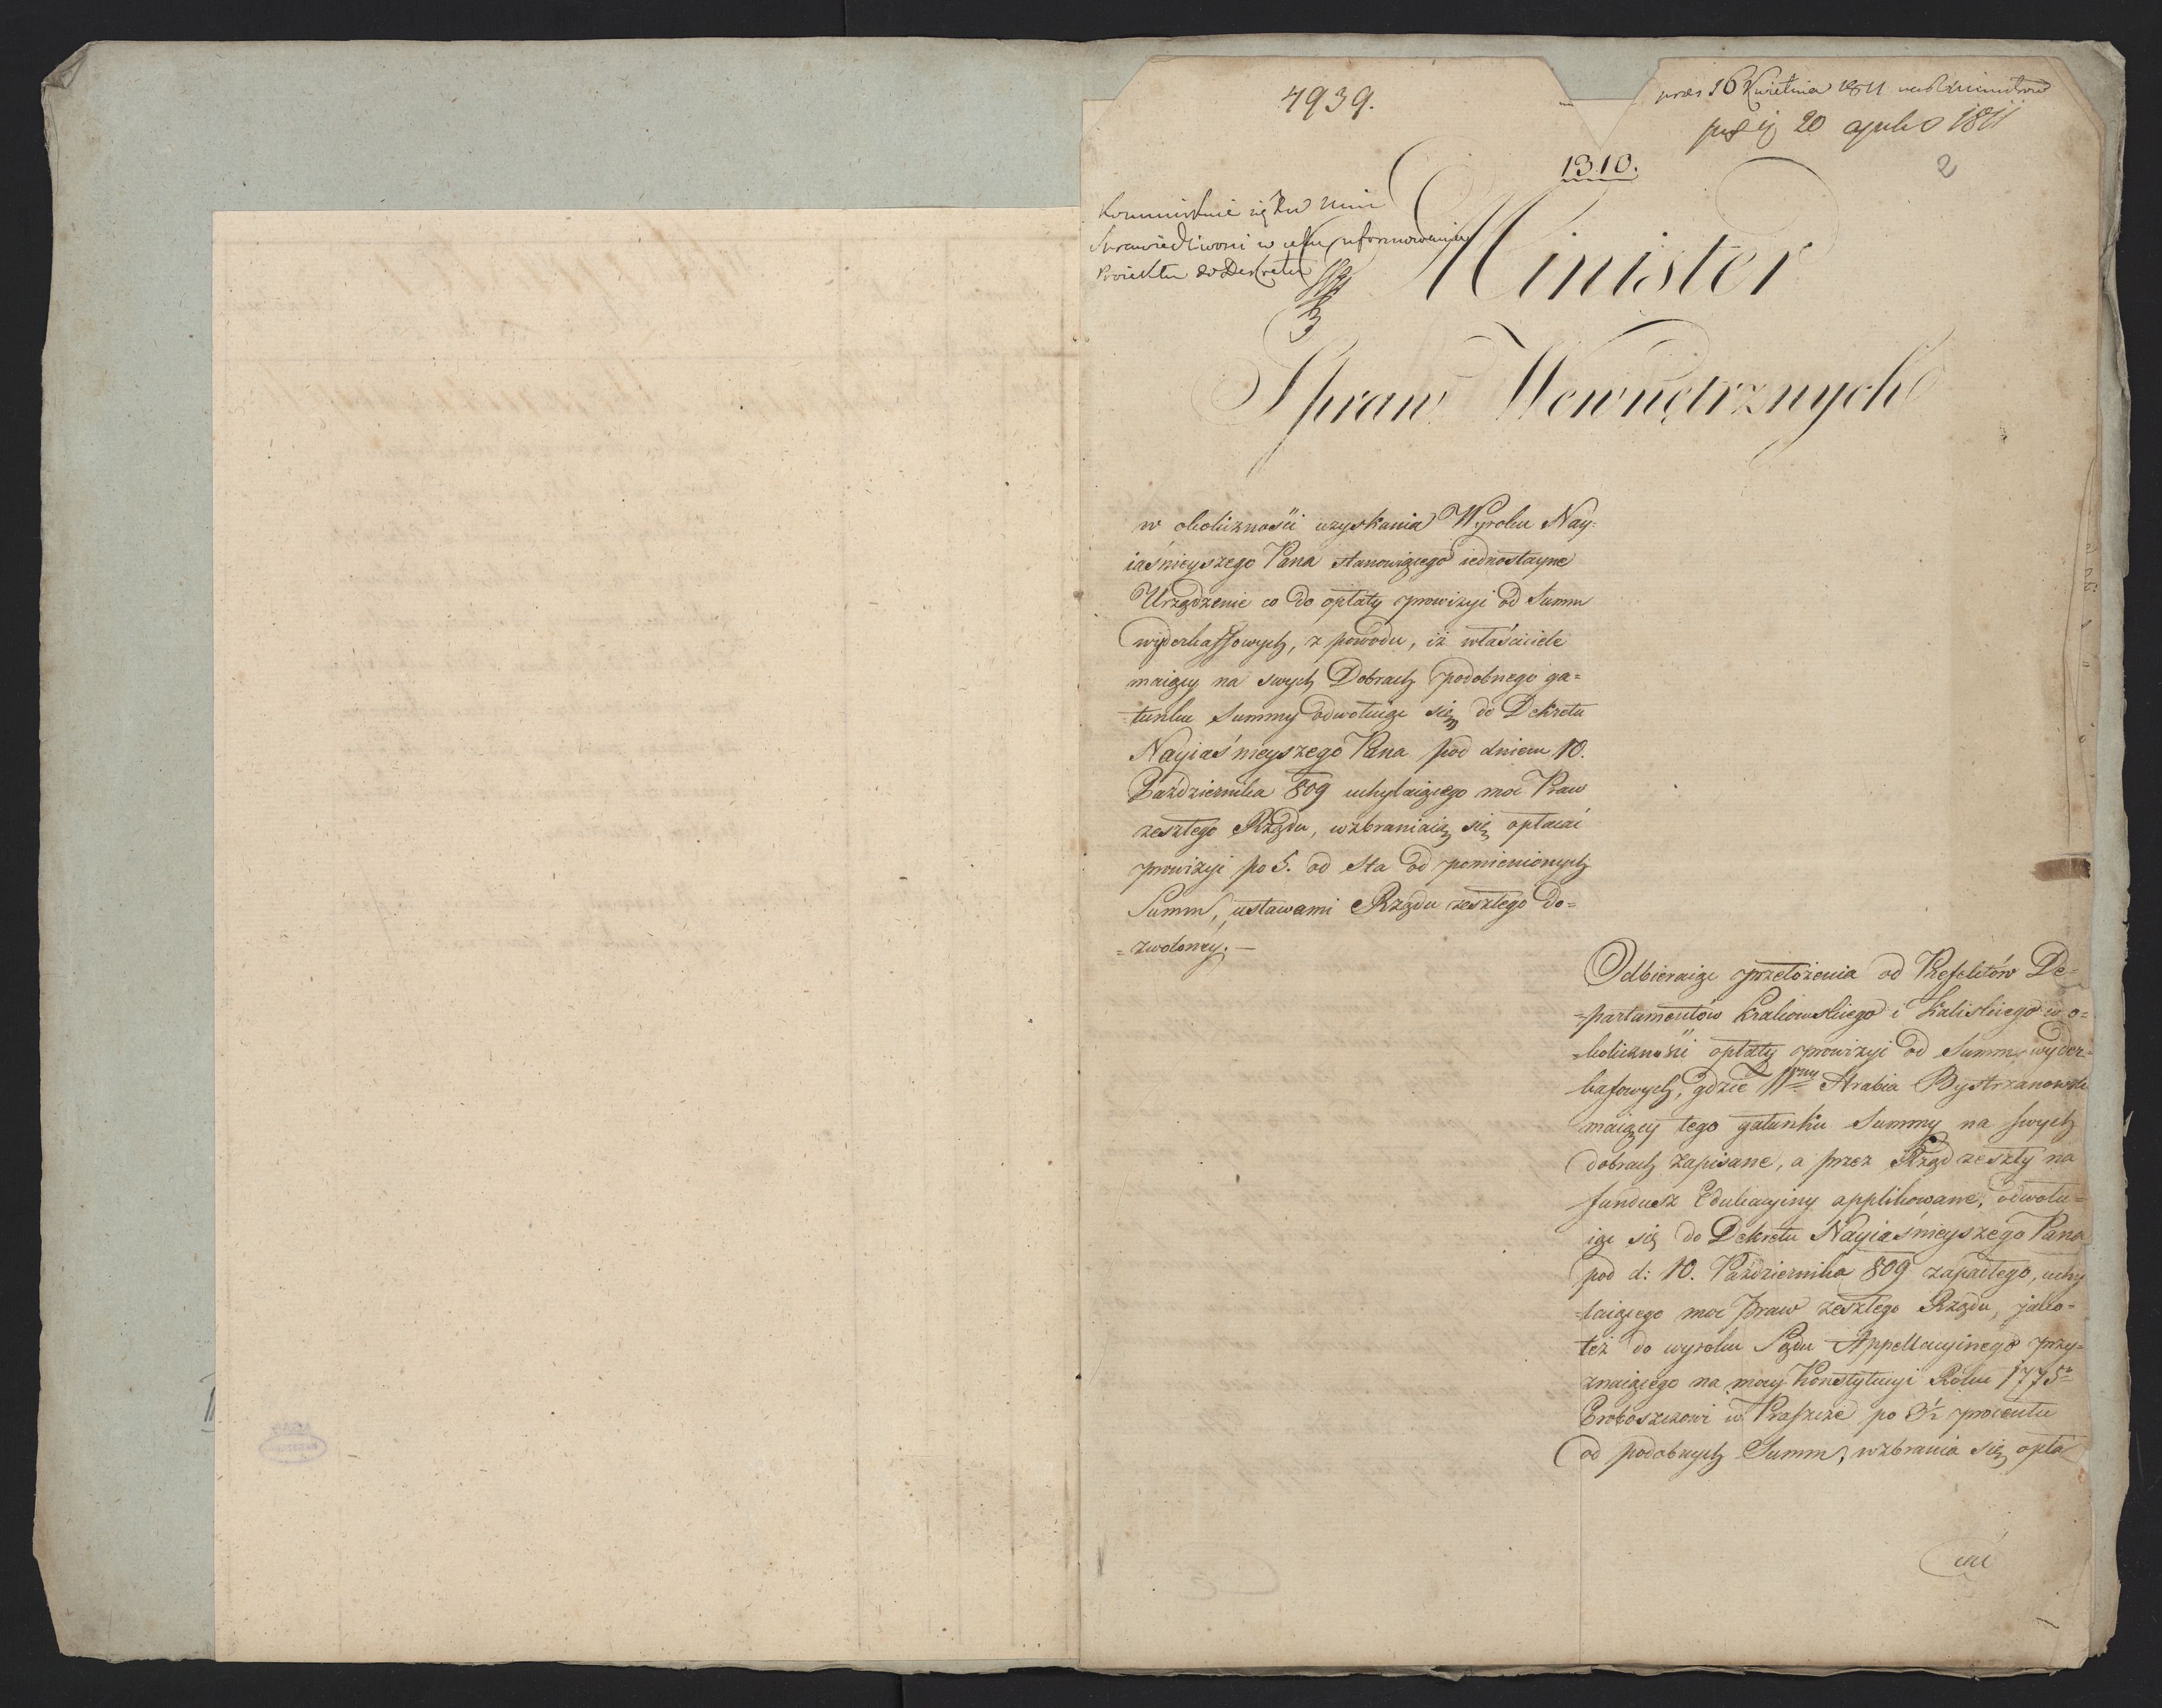 4939.
pres 16 Kwietnia 1811
20 aprilis 1811
2
1310.
Kommunikuie się Ru Mini
Sprawiedliwosci w celu uformowania
Proiektu do Dekretu
Minister
Spraw Wewnętrznych
w okoliczności uzyskania Wyroku Nay=
iaśnieyszego Pana stanowiącego iednostayne
Urządzenie co do opłaty prowizyi od Summ
wyderkaffowych, z powodu, iż właściciele
maiący na swych Dobrach podobnego ga=
tunku Summy odwołuiąc się do Dekretu
Nayiaśnieyszego Pana pod dniem 10.
Października 809 uchylaiącego moc Praw
zeszłego Rządu, wzbraniaią się opłacać
prowizyi po 5. od Sta od pomienionych
Summ, ustawami Rządu zeszłego do=
=zwoloney. —
Odbieraiąc przełożenia od Prefektów De=
=partamentów Krakowskiego i Kaliskiego w o=
=koliczności opłaty prowizyi od Summ wyder=
kafowych, gdzie Wny Hrabia Bystrzanowski
maiący tego gatunku Summy na swych
dobrach zapisane, a przez Rząd zeszły na
fundusz Edukacyiny applikowane, odwołu=
iąc się do Dekretu Nayiaśnieyszego Pana
pod d: 10. Października 809 zapadłego, uchy
=laiącego moc praw zeszłego Rządu, jako=
też do wyroku Sądu Appellacyinego przy=
znaiącego na mocy Konstytucyi Roku 1775º
Proboszczowi w Praszce po 3½ procentu
od podobnych Summ, wzbrania się opła
cać